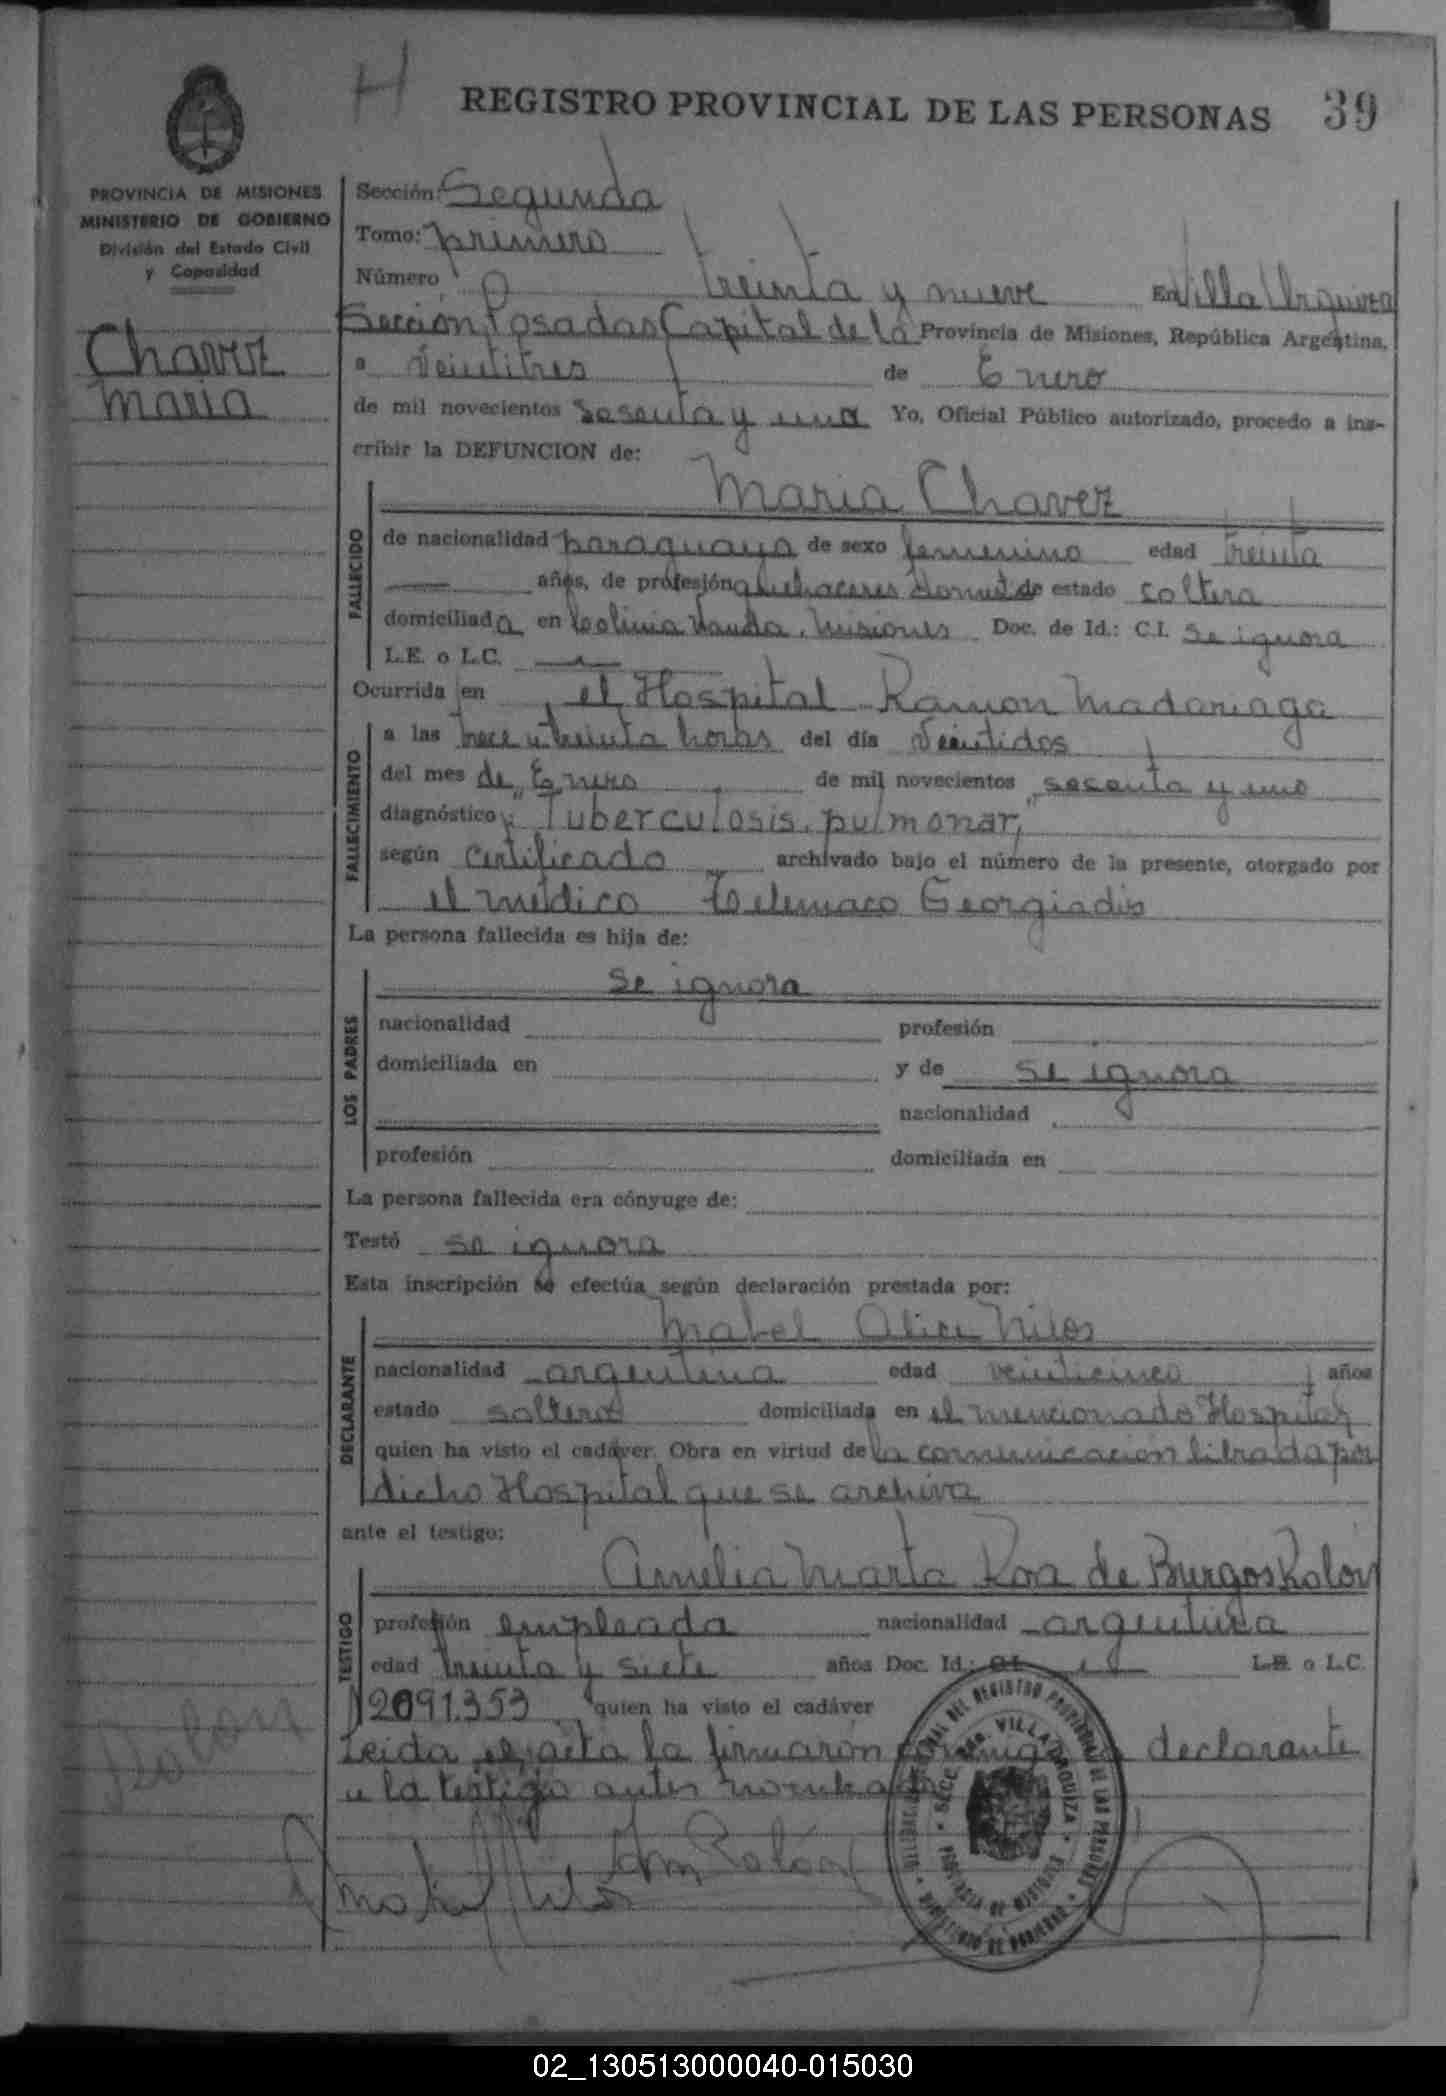 H
REGISTRO PROVINCIAL DE LAS PERSONAS 39
PROVINCIA DE MISIONES
MINISTERIO DE GOBIERNO
División del Estado Civil
y Capacidad
Chavez
Maria
Sección: Segunda
Tomo: primero
Número treinta y nueve En Villa Urquiza
Sección Posadas Capital de la Provincia de Misiones, República Argentina,
a Veintitres de Enero
de mil novecientos sesenta y uno Yo, Oficial Público autorizado, procedo a ins-
cribir la DEFUNCION de:
Maria Chavez
FALLECIDO
de nacionalidad paraguaya de sexo femenino edad treinta
años, de profesión quehaceres domést de estado soltera
domiciliada en Colonia Wanda, Misiones Doc. de Id.: C.I. se ignora
L.E. o L.C.
Ocurrida en el Hospital Ramon Madariaga
FALLECIMIENTO
a las trece y treinta horas del día Veintidos
del mes de Enero de mil novecientos sesenta y uno
diagnóstico "Tuberculosis pulmonar,"
según Certificado archivado bajo el número de la presente, otorgado por
el médico Telemaco Georgiadis
La persona fallecida es hija de:
LOS PADRES
se ignora
nacionalidad profesión
domiciliada en y de se ignora
nacionalidad
profesión domiciliada en
La persona fallecida era cónyuge de:
Testó se ignora
Esta inscripción se efectúa según declaración prestada por:
DECLARANTE
Mabel Alice
nacionalidad argentina edad veinticinco años
estado soltera domiciliada en el mencionado Hospital
quien ha visto el cadáver. Obra en virtud de la comunicación librada por
dicho Hospital que se archiva
ante el testigo:
TESTIGO
Amelia Marta Roa de Burgos Rolon
profesión empleada nacionalidad argentina
edad treinta y siete años Doc. Id.: C.I. L.E. o L.C.
2091.353 quien ha visto el cadáver
Leida el acta la firmaron conmigo declarante
y la testigo antes nombrada
Rolon
SECC. 2da. VILLA URQUIZA
PROVINCIA DE MISIONES
MINISTERIO DE GOBIERNO
02_130513000040-015030